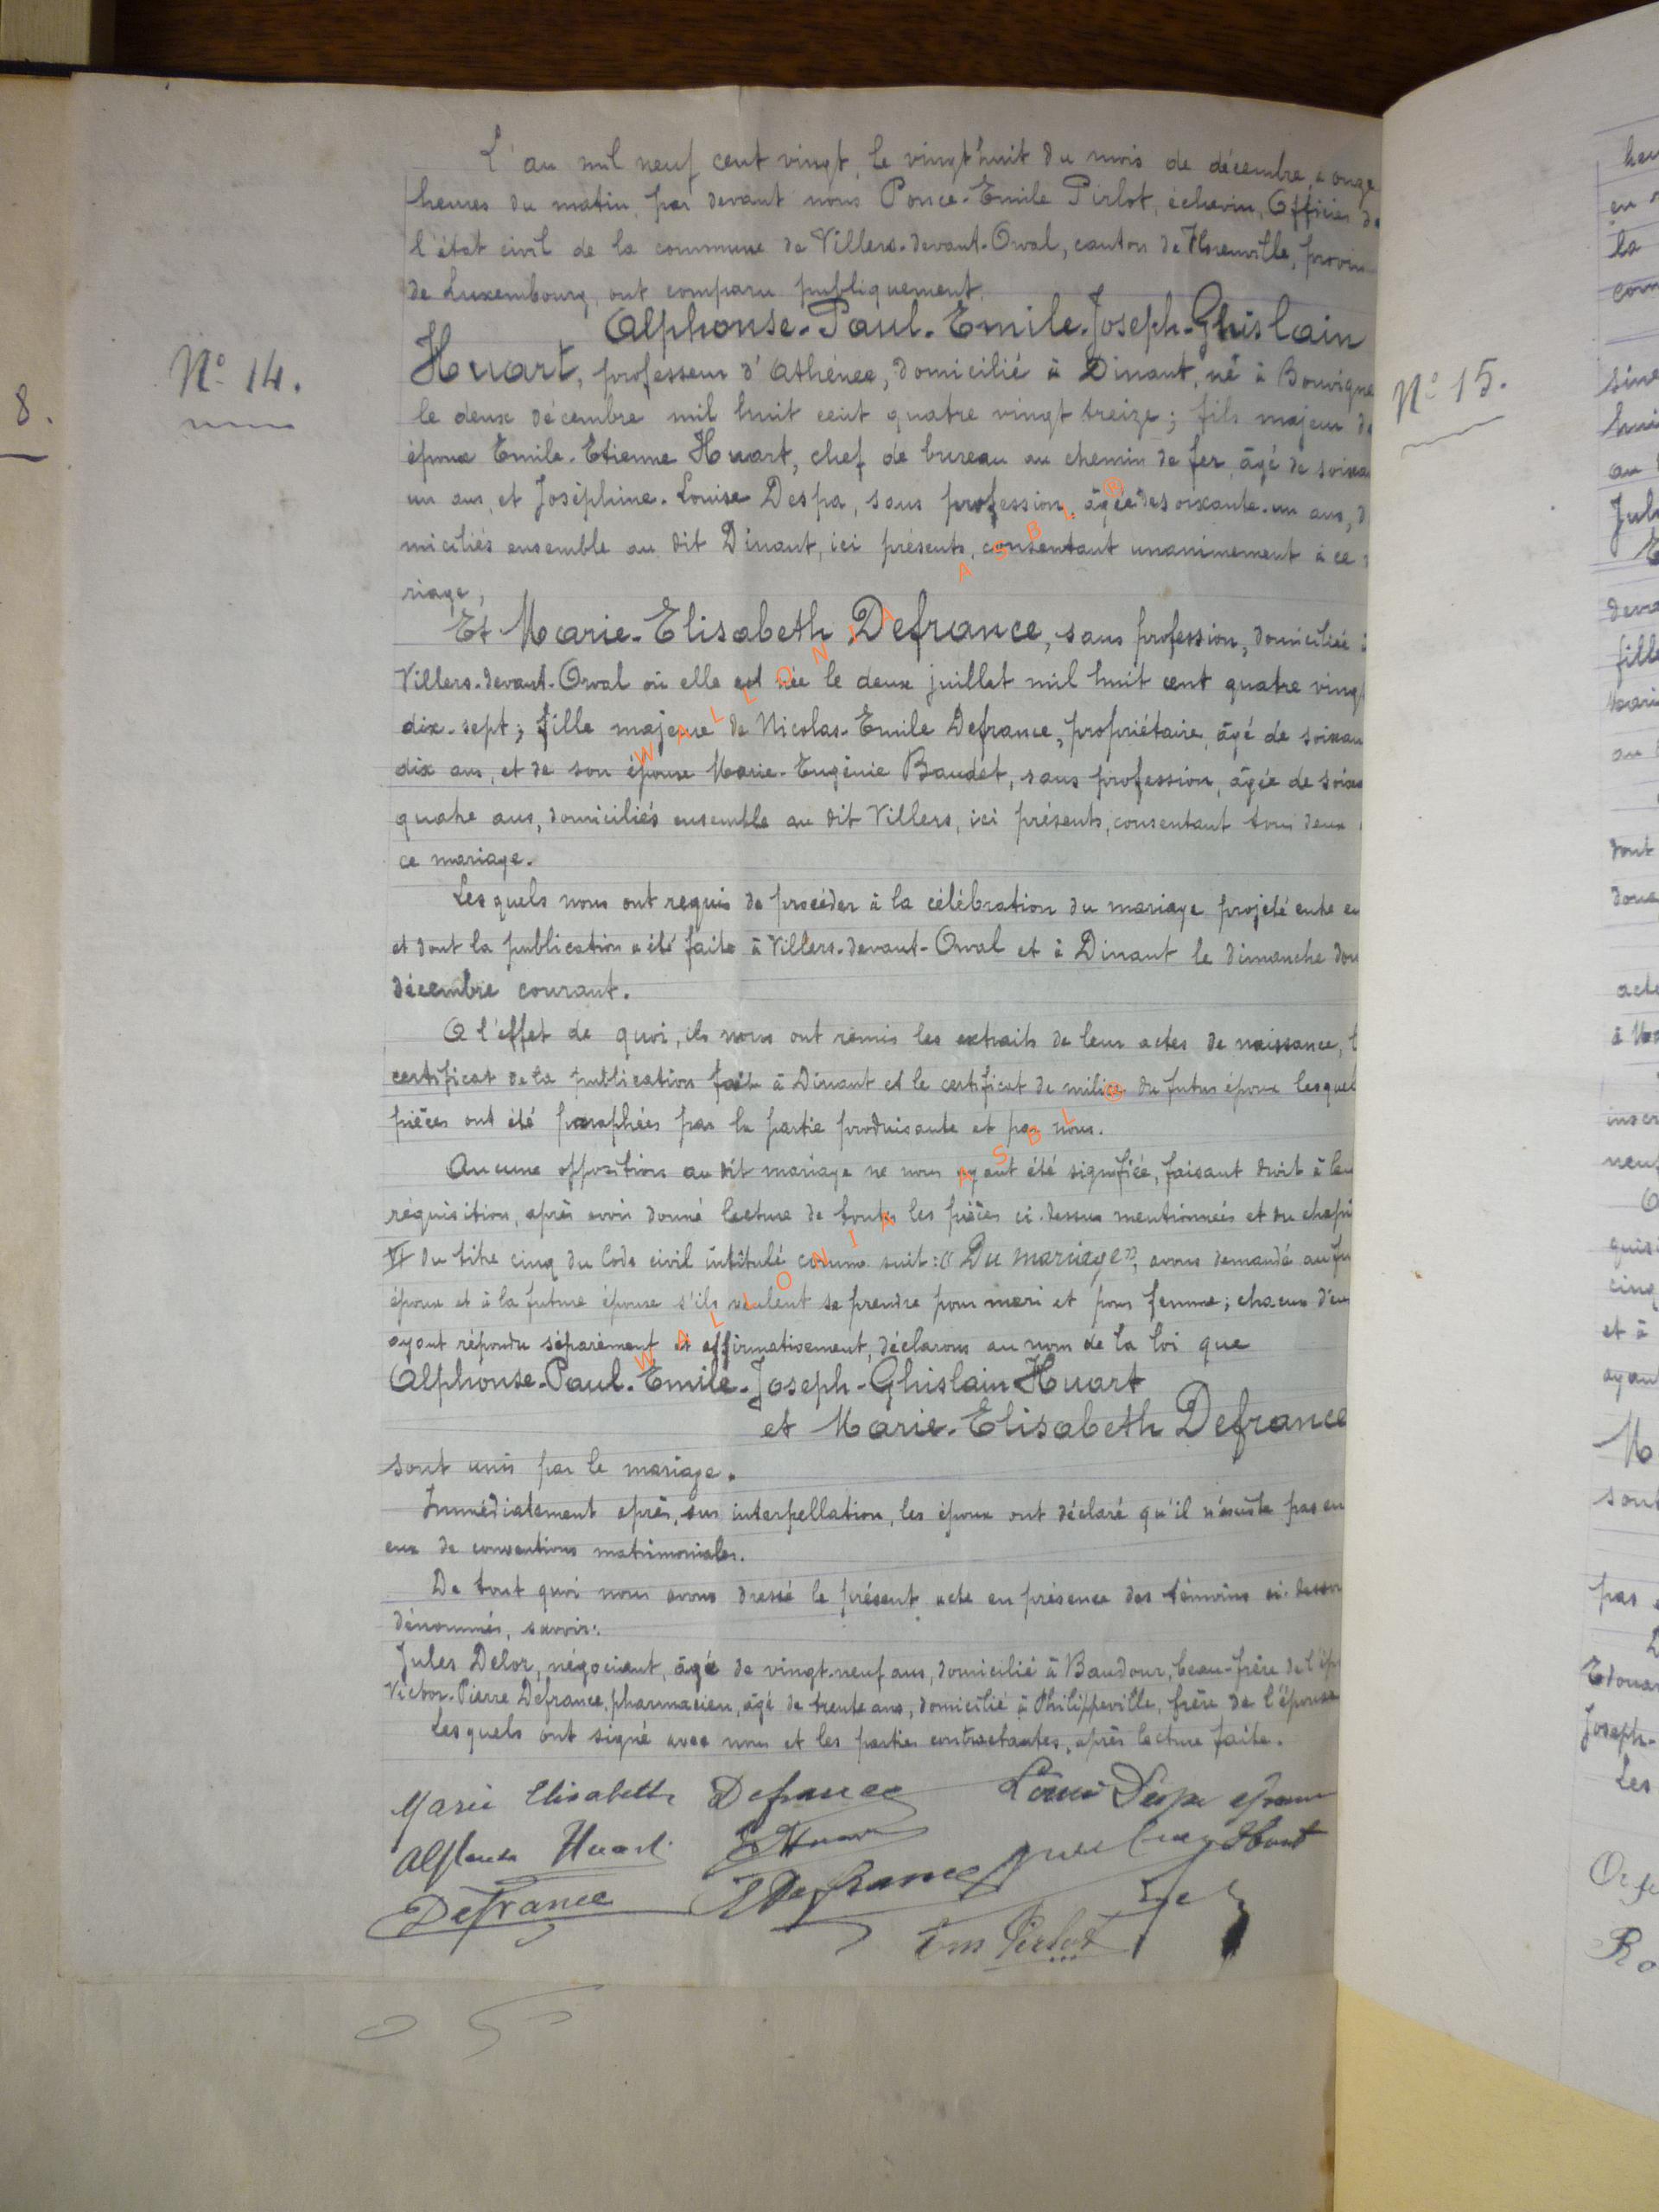 8.
N° 14.
L'an mil neuf cent vingt, le vingt huit du mois de décembre, à onze
heures du matin, par devant nous Ponce-Emile Pirlot, échevin, Officier de
l'état civil de la commune de Villers-devant-Orval, canton de Florenville, provin
de Luxembourg, ont comparu publiquement.
Alphonse-Paul-Emile-Joseph-Ghislain
Huart, professeur d'Athénée, domicilié à Dinant, né à Bouvigne
le deux décembre mil huit cent quatre vingt treize; fils majeur de
époux Emile-Etienne Huart, chef de bureau au chemin de fer, âgé de soixa
un ans, et Joséphine-Louise Despa, sans profession, âgée de soixante-un ans, d
miciliés ensemble au dit Dinant, ici présents, consentant unanimement à ce
riage;
Et Marie-Elisabeth Defrance, sans profession, domiciliée à
Villers-devant-Orval où elle est née le deux juillet mil huit cent quatre vingt
dix-sept; fille majeure de Nicolas-Emile Defrance, propriétaire, âgé de soixan
dix ans, et de son épouse Marie-Eugénie Baudet, sans profession, âgée de soixa
quatre ans, domiciliés ensemble au dit Villers, ici présents, consentant tous deux
ce mariage.
Lesquels nous ont requis de procéder à la célébration du mariage projeté entre eu
et dont la publication a été faite à Villers-devant-Orval et à Dinant le dimanche dou
décembre courant.
A l'effet de quoi, ils nous ont remis les extraits de leur actes de naissance, l
certificat de la publication faite à Dinant et le certificat de milice du futur époux lesquel
pièces ont été paraphées par la partie produisante et par nous.
Aucune opposition au dit mariage ne nous ayant été signifiée, faisant droit à leu
réquisition, après avoir donné lecture de toutes les pièces ci-dessus mentionnées et du chapi
VI du titre cinq du Code civil intitulé comme suit: "Du mariage", avons demandé au fu
époux et à la future épouse s'ils veulent se prendre pour mari et pour femme; chacun d'eux
ayant répondu séparément et affirmativement, déclarons au nom de la loi que
Alphonse-Paul-Emile-Joseph-Ghislain Huart
et Marie-Elisabeth Defrance
sont unis par le mariage.
Immédiatement après, sur interpellation, les époux ont déclaré qu'il n'existe pas en
eux de conventions matrimoniales.
De tout quoi nous avons dressé le présent acte en présence des témoins ci-dessou
dénommés, savoir:
Jules Delor, négociant, âgé de vingt-neuf ans, domicilié à Baudour, beau-frère de l'ép
Victor-Pierre Defrance, pharmacien, âgé de trente ans, domicilié à Philippeville, frère de l'épouse
Lesquels ont signé avec nous et les parties contractantes, après lecture faite.
Marie Elisabeth Defrance
Alphonse Huart
EHuart
Defrance
Defrance
Em Pirlot
WALLONIA ASBL ®
WALLONIA ASBL ®
N° 15.